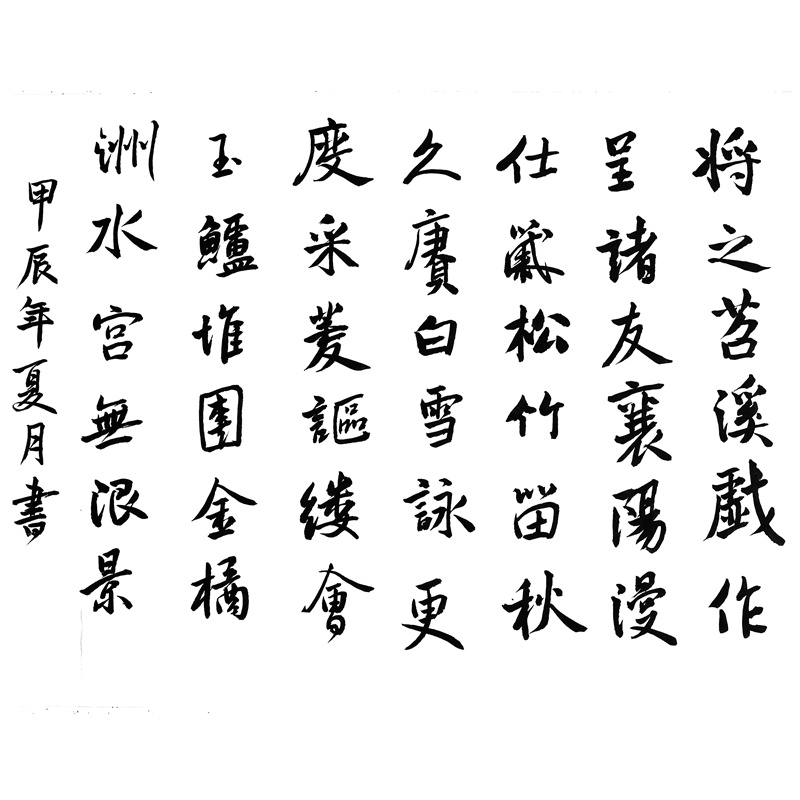 将之苕溪戲作
呈諸友襄陽漫
仕黻松竹留秋
久賡白雪詠更
度采菱謳縷會
玉鱸堆團金橘
洲水宮無限景
甲辰年夏月書